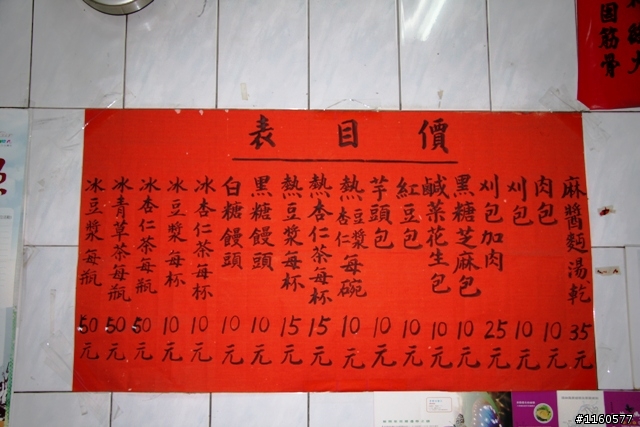 價目表
麻醬麵湯乾35元
肉包10元
刈包10元
刈包加肉25元
黑糖芝麻包10元
鹹菜花生包10元
紅豆包10元
芋頭包10元
熱杏仁豆漿每碗10元
熱杏仁茶每杯15元
熱豆漿每杯15元
黑糖饅頭10元
白糖饅頭10元
冰杏仁茶每杯10元
冰豆漿每杯10元
冰杏仁茶每瓶50元
冰青草茶每瓶50元
冰豆漿每瓶50元
固筋骨
#1160577